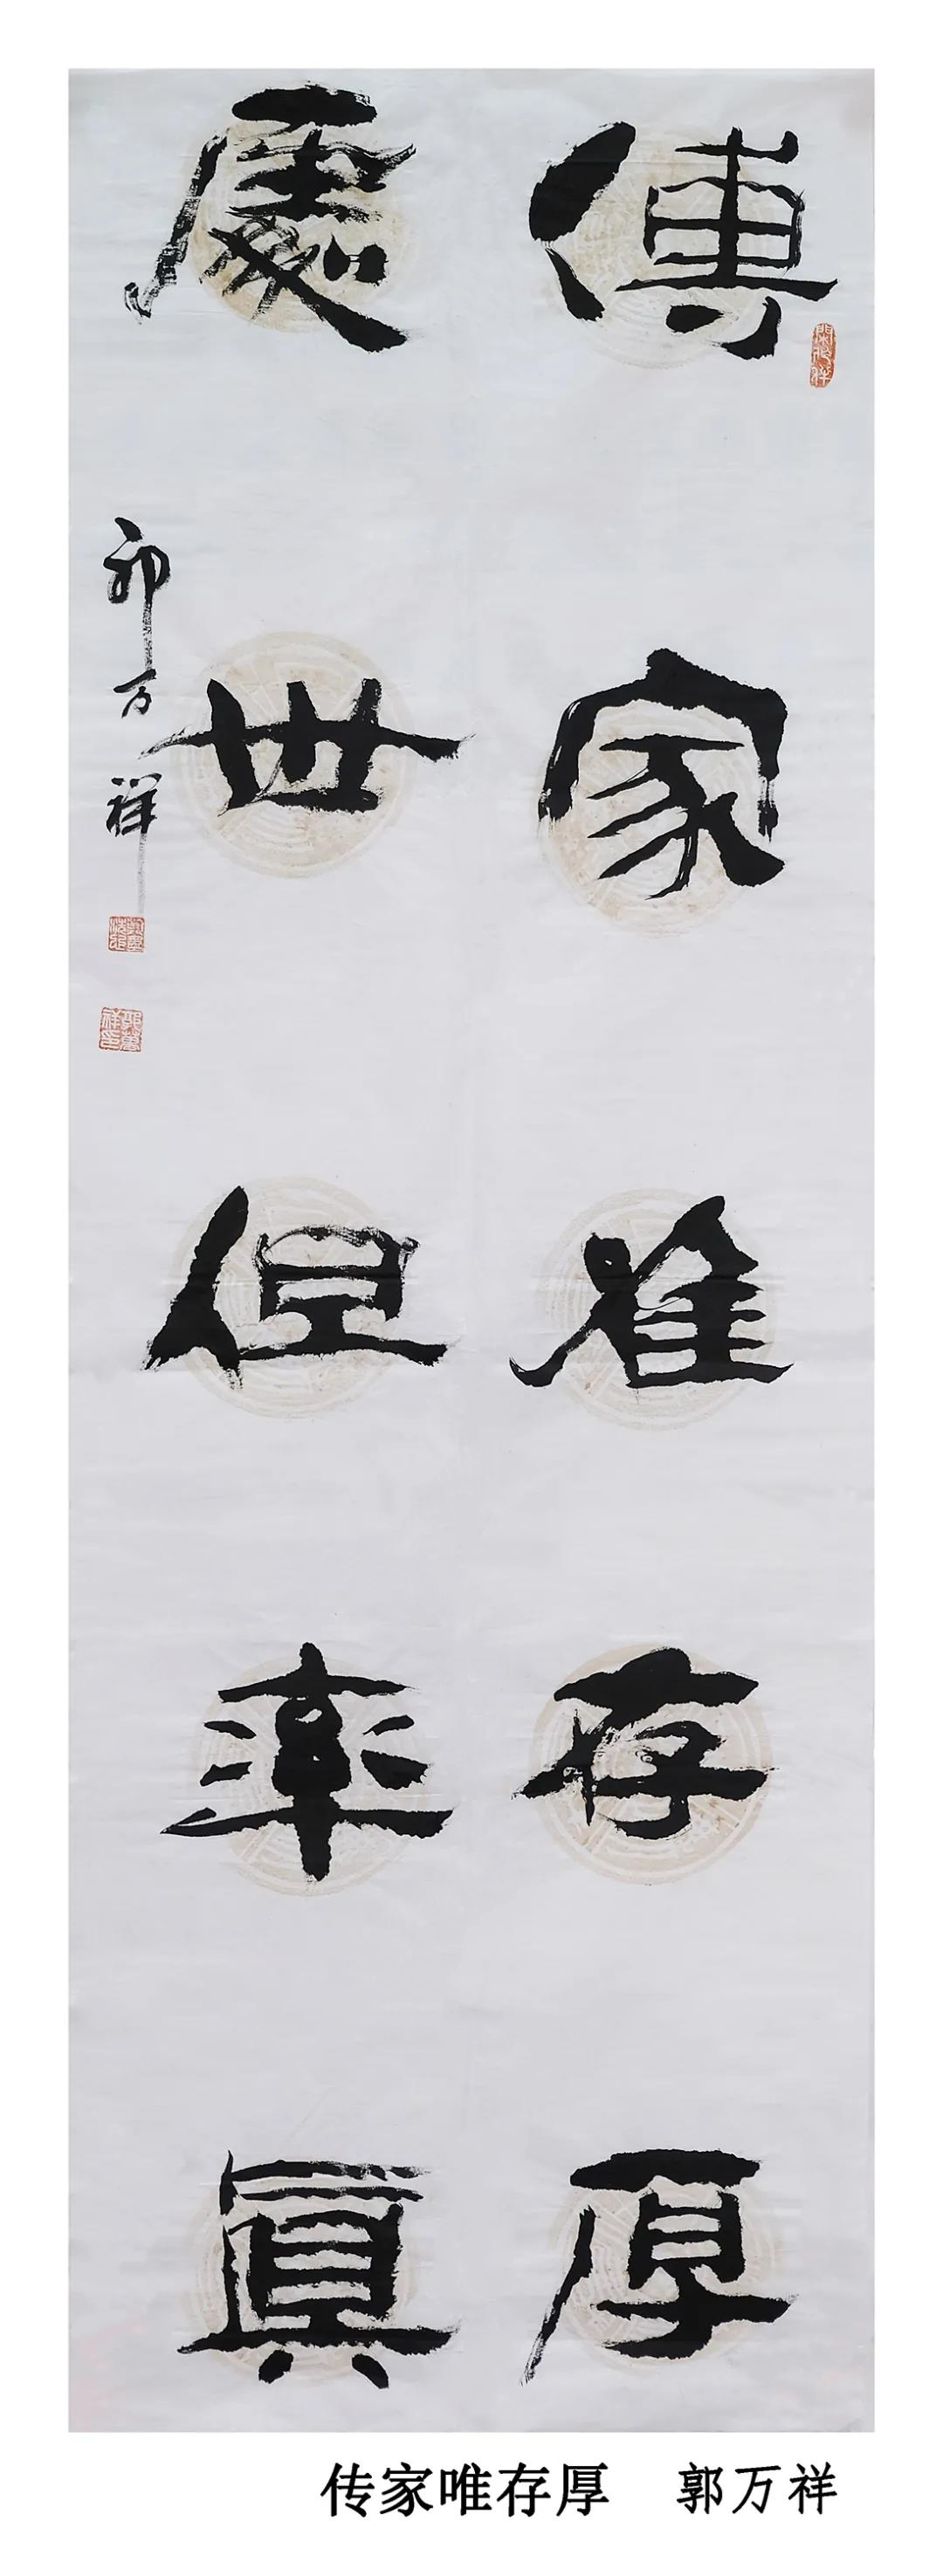 傳家唯存厚
處世但率真
郭万祥
传家唯存厚 郭万祥